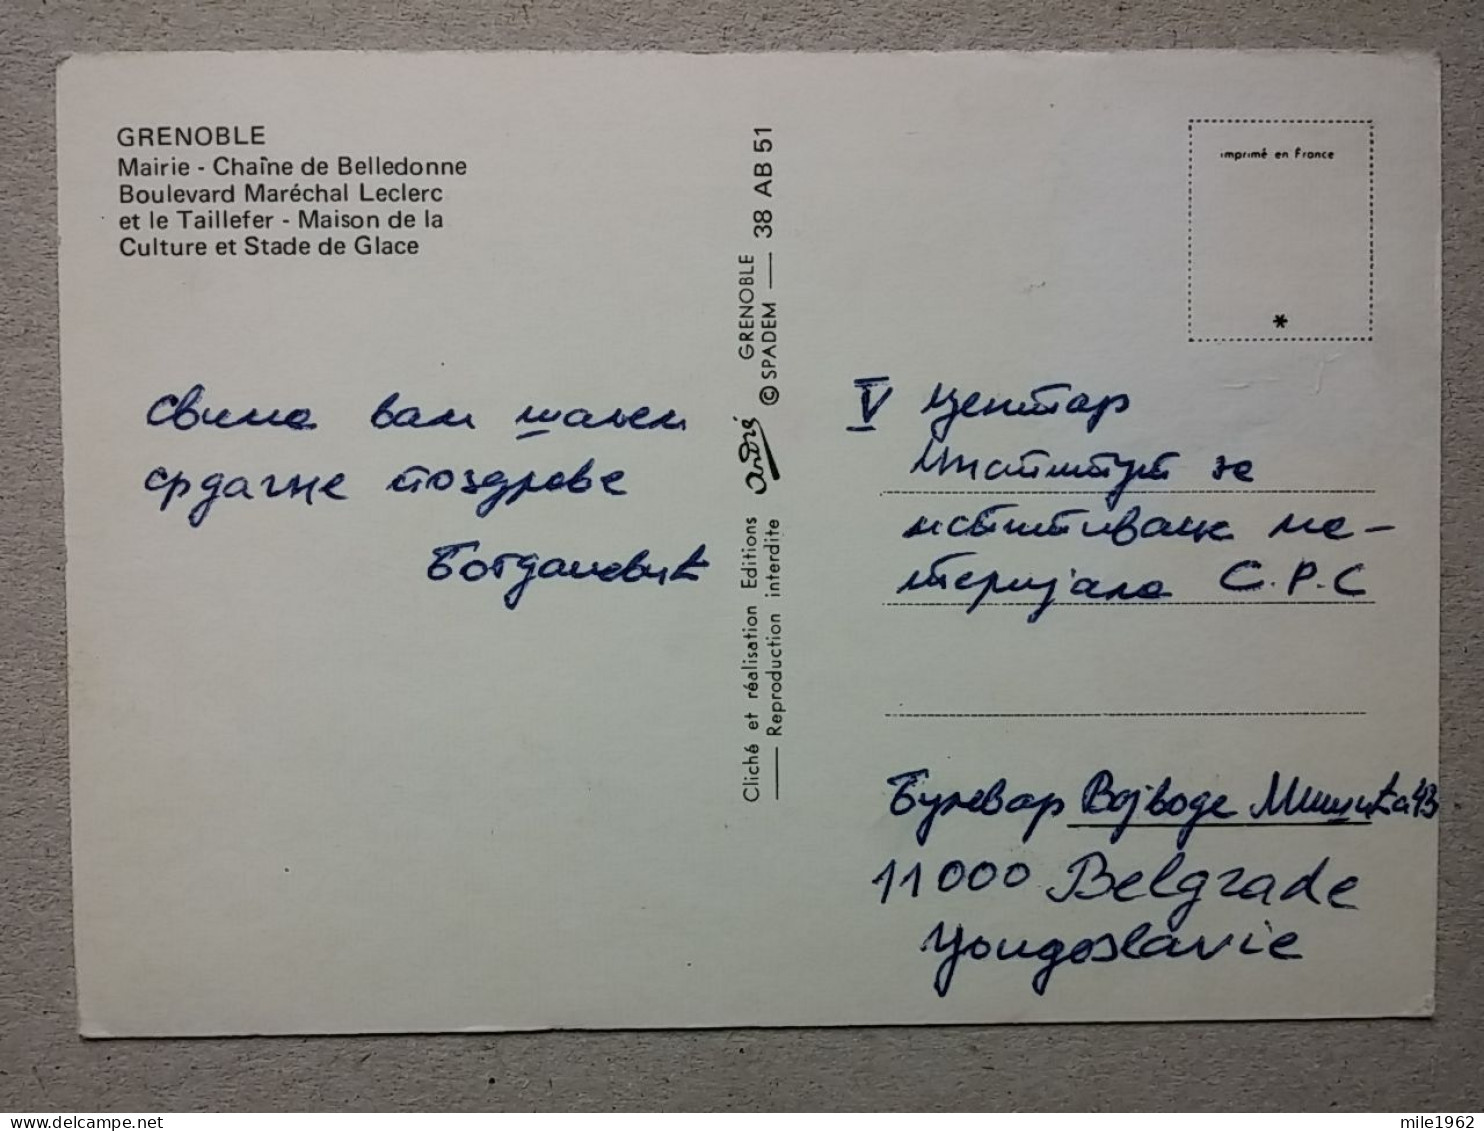 GRENOBLE
Mairie - Chaîne de Belledonne
Boulevard Maréchal Leclerc
et le Taillefer - Maison de la
Culture et Stade de Glace
свима вам шаљем
срдачне поздраве
Богдановић
Cliché et réalisation Editions André GRENOBLE
Reproduction interdite © SPADEM 38 AB 51
imprimé en France
*
V центар
Институт за
испитивање ма-
теријала С.Р.С
Булевар Војводе Мишића 43
11000 Belgrade
Yougoslavie
mile1962